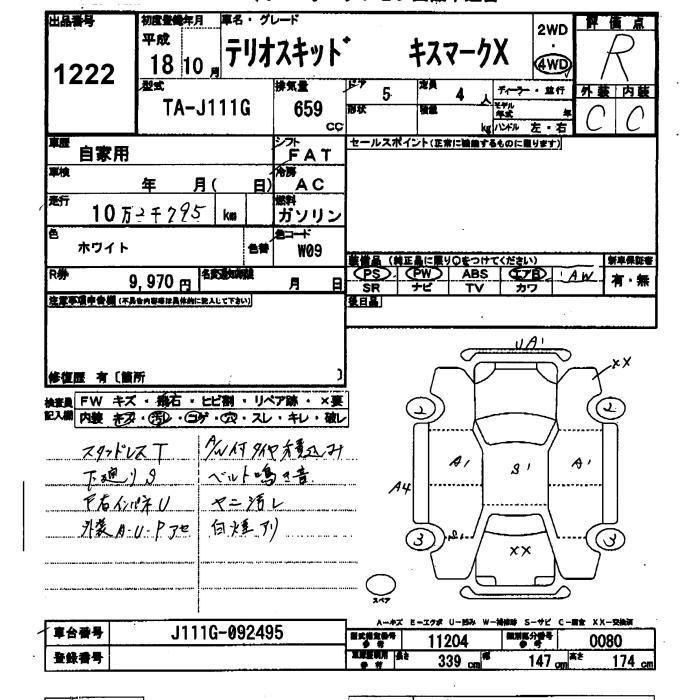 出品番号 1222
初度登録年月 平成 18 10 月
車名・グレード テリオスキッド キスマークX
2WD ・ 4WD
評価点 R
型式 TA-J111G
排気量 659 CC
ドア 5
定員 4 人
形状
積載 kg
ディーラー・並行
モデル年式 年
ハンドル 左・右
外装 内装
C C
車歴 自家用
シフト FAT
セールスポイント(正常に機能するものに限ります)
車検 年 月( 日)
冷房 AC
走行 10万2千795 km
燃料 ガソリン
色 ホワイト
色替
色コード W09
装備品(純正品に限り○をつけてください)
新車保証書
R券 9,970 円
名変通知期限 月 日
PS PW ABS エアB AW
有・無
SR ナビ TV カワ
注意事項申告欄(不具合内容等は具体的に記入して下さい)
後日品
修復歴 有〔箇所 〕
検査員記入欄
FW キズ・飛石・ヒビ割・リペア跡・×要
内装 キズ・汚レ・コゲ・穴・スレ・キレ・破レ
UA1
XX
2 2
A1 S1 A1
A4
3 S1 3
XX
スペア
スタッドレスT
A/W付タイヤ積込み
下廻りS
ベルト鳴き音
下右インパネU
ヤニ汚レ
外装A-U-Pアセ
白煙アリ
A-キズ E-エクボ U-凹み W-補修跡 S-サビ C-腐食 XX-交換済
車台番号 J111G-092495
型式指定番号 参考 11204
類別区分番号 参考 0080
登録番号
長さ 339 cm
幅 147 cm
高さ 174 cm